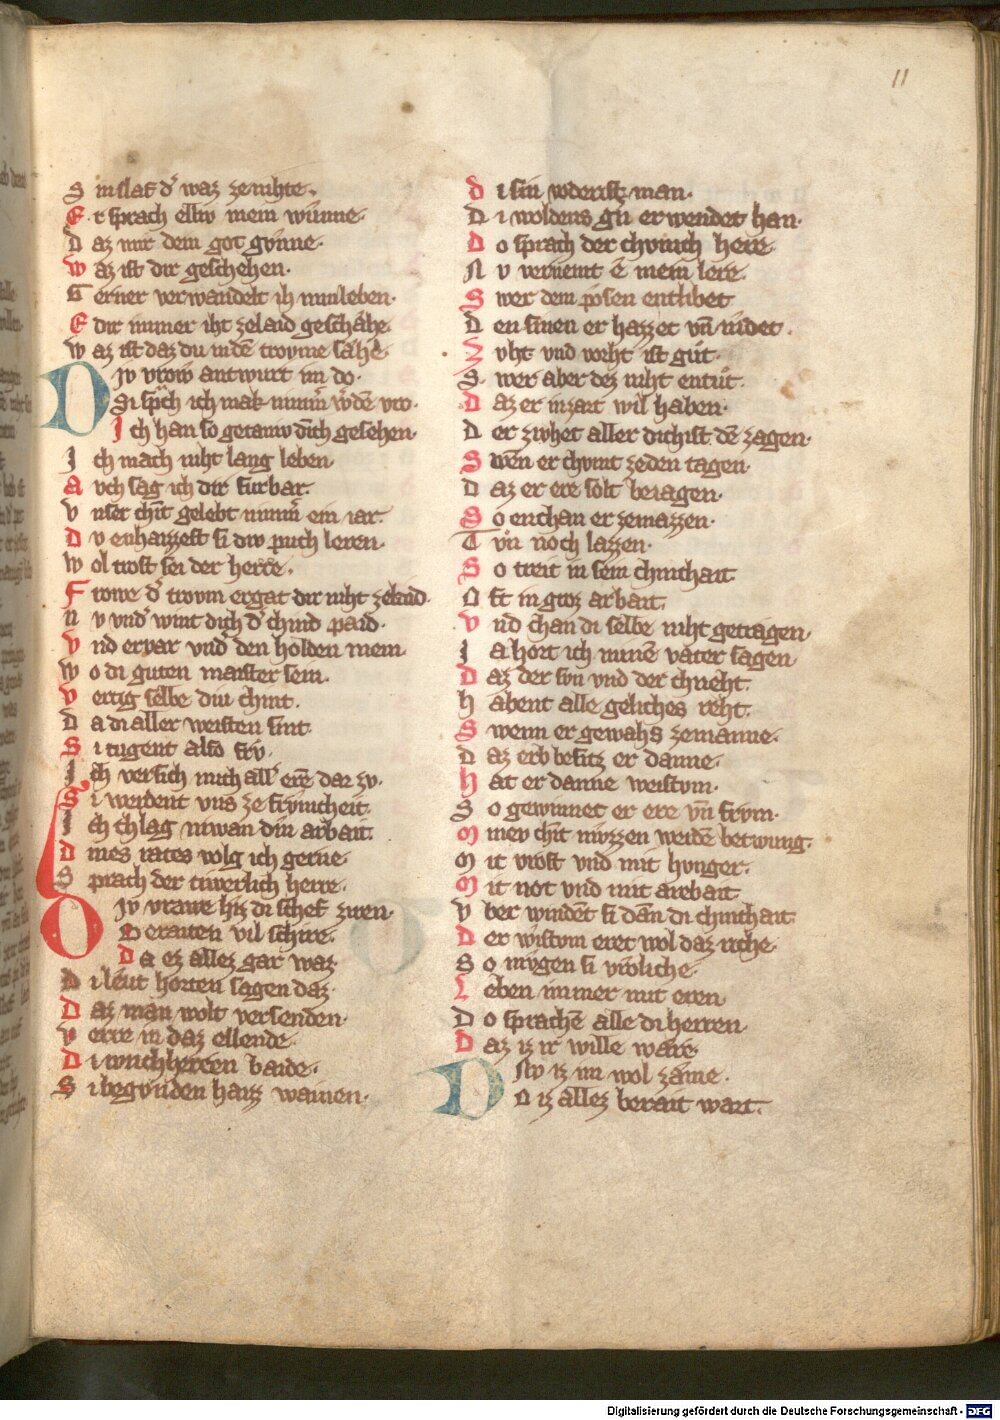 11
S in slaf d' waz ze nihte.
E r sprach elliv mein wunne.
D az mir dem got gvnne.
W az ist dir geschehen.
G erner verwandelt ih min leben.
E dir immer iht ze laid geschåhe.
W az ist daz du in dē trovme sæhe
D iv vrow antwurt im do.
Si sp̄ch ich mak nim̄ w̄dē vro.
I ch han so getaniv dīch gesehen.
I ch mach niht lang leben.
A vch sag ich dir furbar.
V nser chīt gelebt nim̄ ein iar.
D v enhaizzest si div puch leren.
W ol trost sei der herre.
F rowe d' trovm ergat dir niht ze laid.
N v vnd' wint dich d' chind paid.
V nd ervar vnd' den holden mein.
W o di guten maister sein.
V ertig selbe din chint.
D a di aller weisten sint.
S i tugent also fry.
I ch versich mich all' erē dar zv.
S i werdent vns ze frvmcheit.
I ch chlag niwan din arbait.
D ines rates volg ich gerne.
S prach der tiwerlich herre.
D iv vrawe hiz di schef ziren.
Beraiten vil schire.
D a ez allez gar waz
D i leut horten sagen daz.
D az man wolt versenden.
V erre in daz ellende.
D i ivnchherren baide.
S i begvnden harz wainen.
D i sin wderist man.
D i woldens gn̄ erwendet han.
D o sprach der chvnich here
N v vernemt ē mein lere.
S wer dem posen entlibet
D en sinen er hazzet vn̄ nidet.
Z vht vnd vorht ist gut.
S wer aber dez niht entut.
D az er in zart wil haben.
D er zivhet aller dichist dē zagen.
S wēn er chvmt ze den tagen.
D az er ere solt beiagen.
S o enchan er ze mazzen.
T vn noch lazzen.
S o treit in sein chinthait
O ft in groz arbait.
V nd chan di selbe niht getragen.
I a hort ich minē vater sagen.
D az der svn vnd der chneht.
H abent alle geliches reht.
S wenn er gewahs ze manne.
D az erb besitz er danne.
H at er danne weistvm.
S o gewinnet er ere vn̄ frvm.
M inev chīt mvzzen werdē betwung.
M it vrost vnd mit hvnger.
M it not vnd mit arebait
V ber windēt si dān di chinthait.
D er wistvm eret wol daz riche.
S o mvgen si vroliche.
L eben immer mit eren.
D o sprachē alle di herren.
D az iz ir wille ware.
D Nv iz im wol zame.
D o iz allez berait wart.
Digitalisierung gefördert durch die Deutsche Forschungsgemeinschaft - DFG